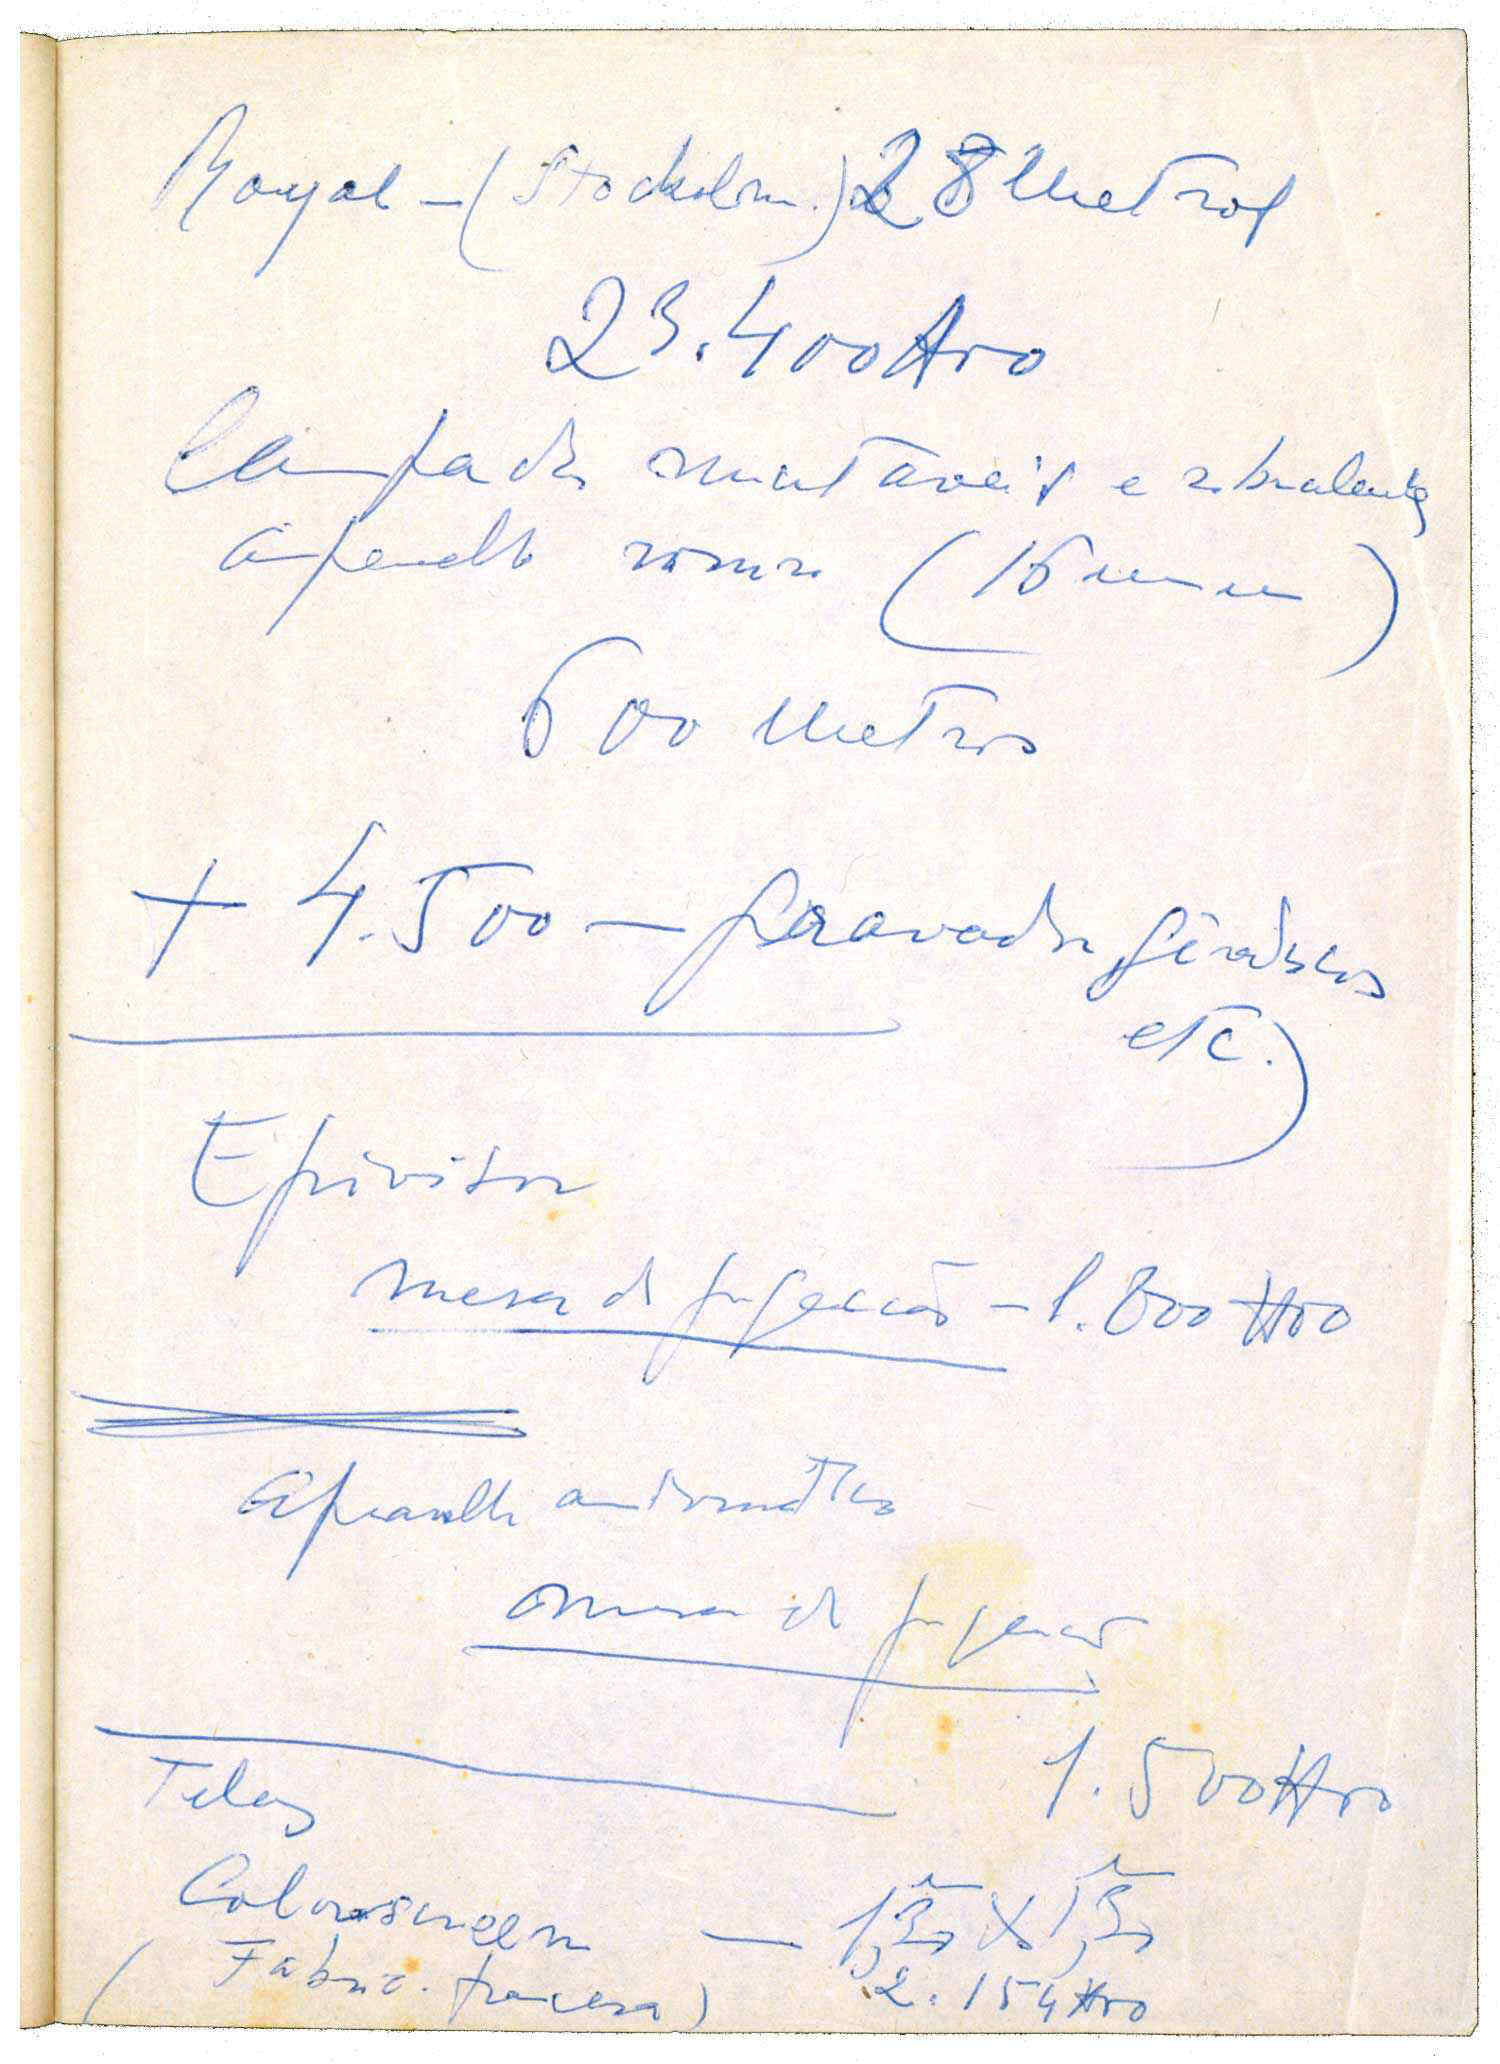 Royal - (Stockolm.) 28 Metros
23.400$00
Lampadas mutaveis e
aparelho sonoro (16 mm)
600 Metros
+ 4.500 - para
etc.)
Epivisor
mesa de projecção - 1.800$00
aparelho automatico
mesa de projecção
1.500$00
Telas
Colorscreen - 1,30 x 1,30
(Fabric. francesa) 2.154$00